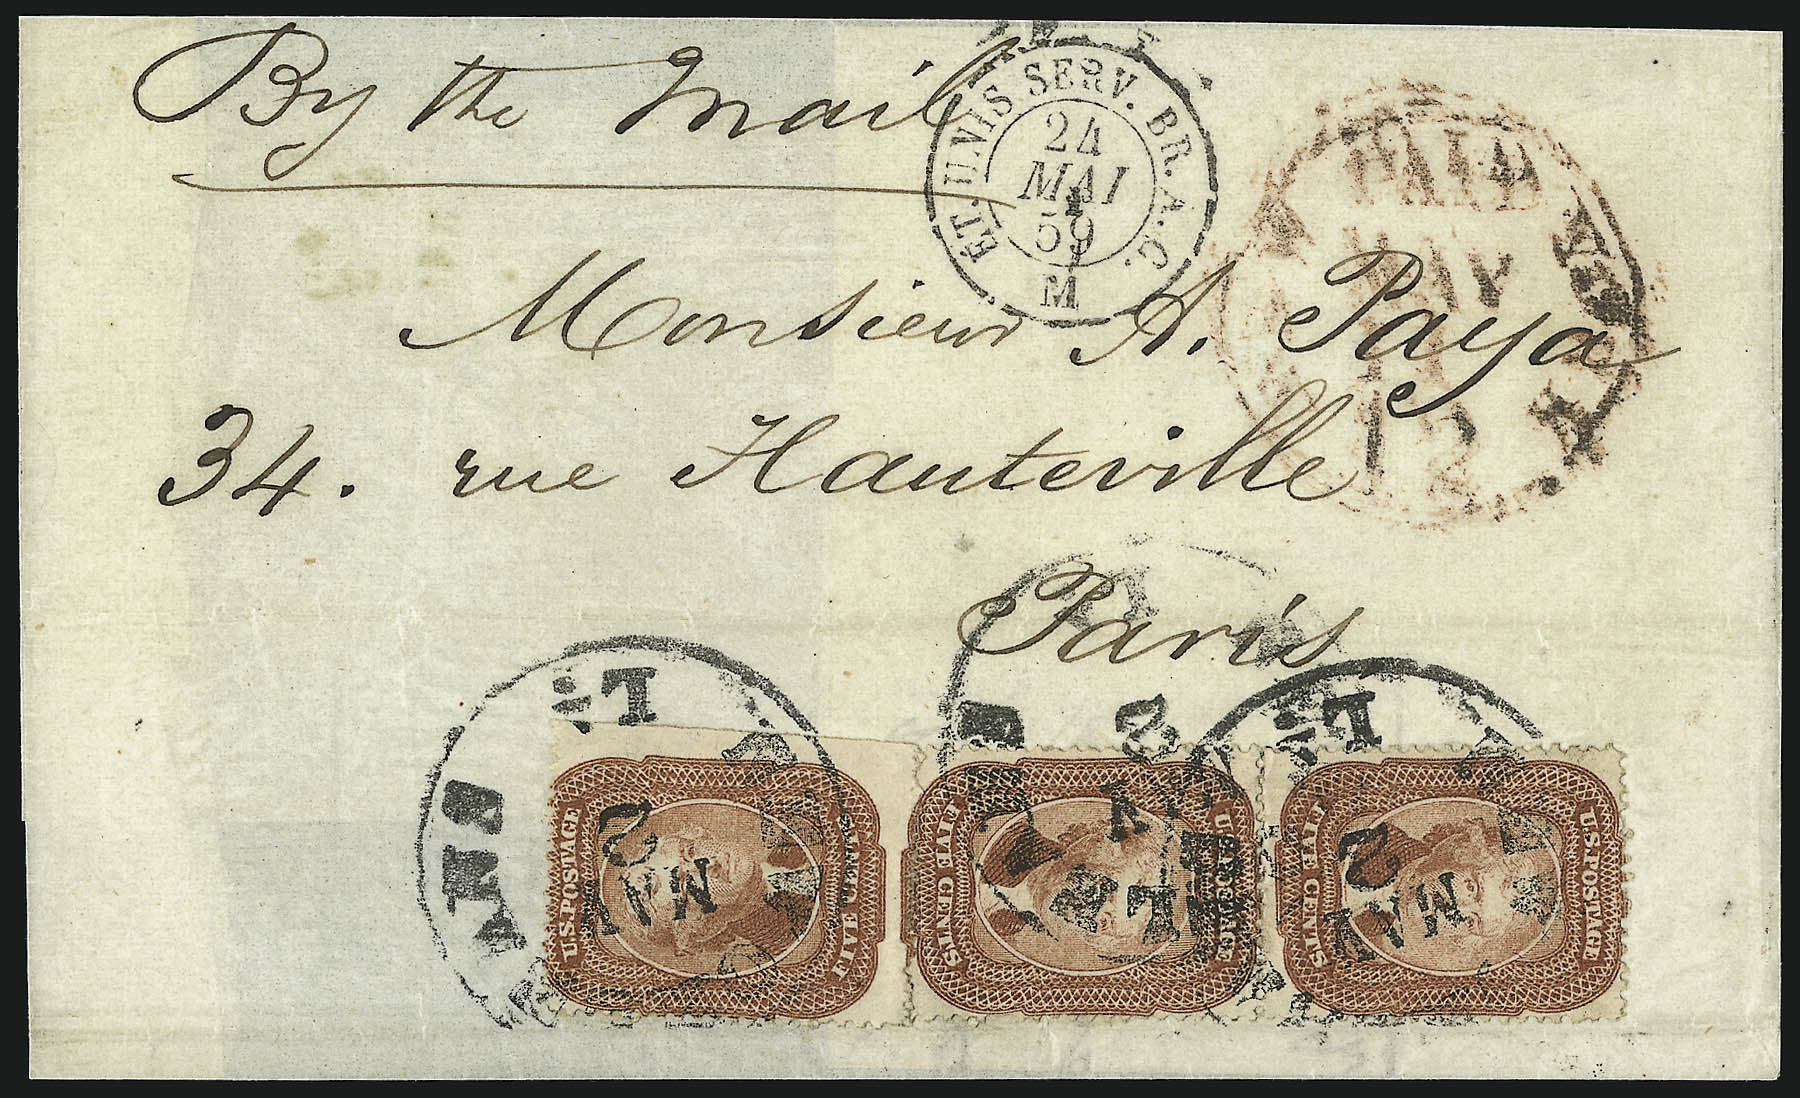 By the Mail
ET. UNIS SERV. BR. A.C.
24
MAI
59
M
PAID
MAY
12
Monsieur A. Paya
34. rue Hauteville
Paris
2
MAY
2
MAY
2
MAY
U.S. POSTAGE
FIVE CENTS
U.S. POSTAGE
FIVE CENTS
U.S. POSTAGE
FIVE CENTS